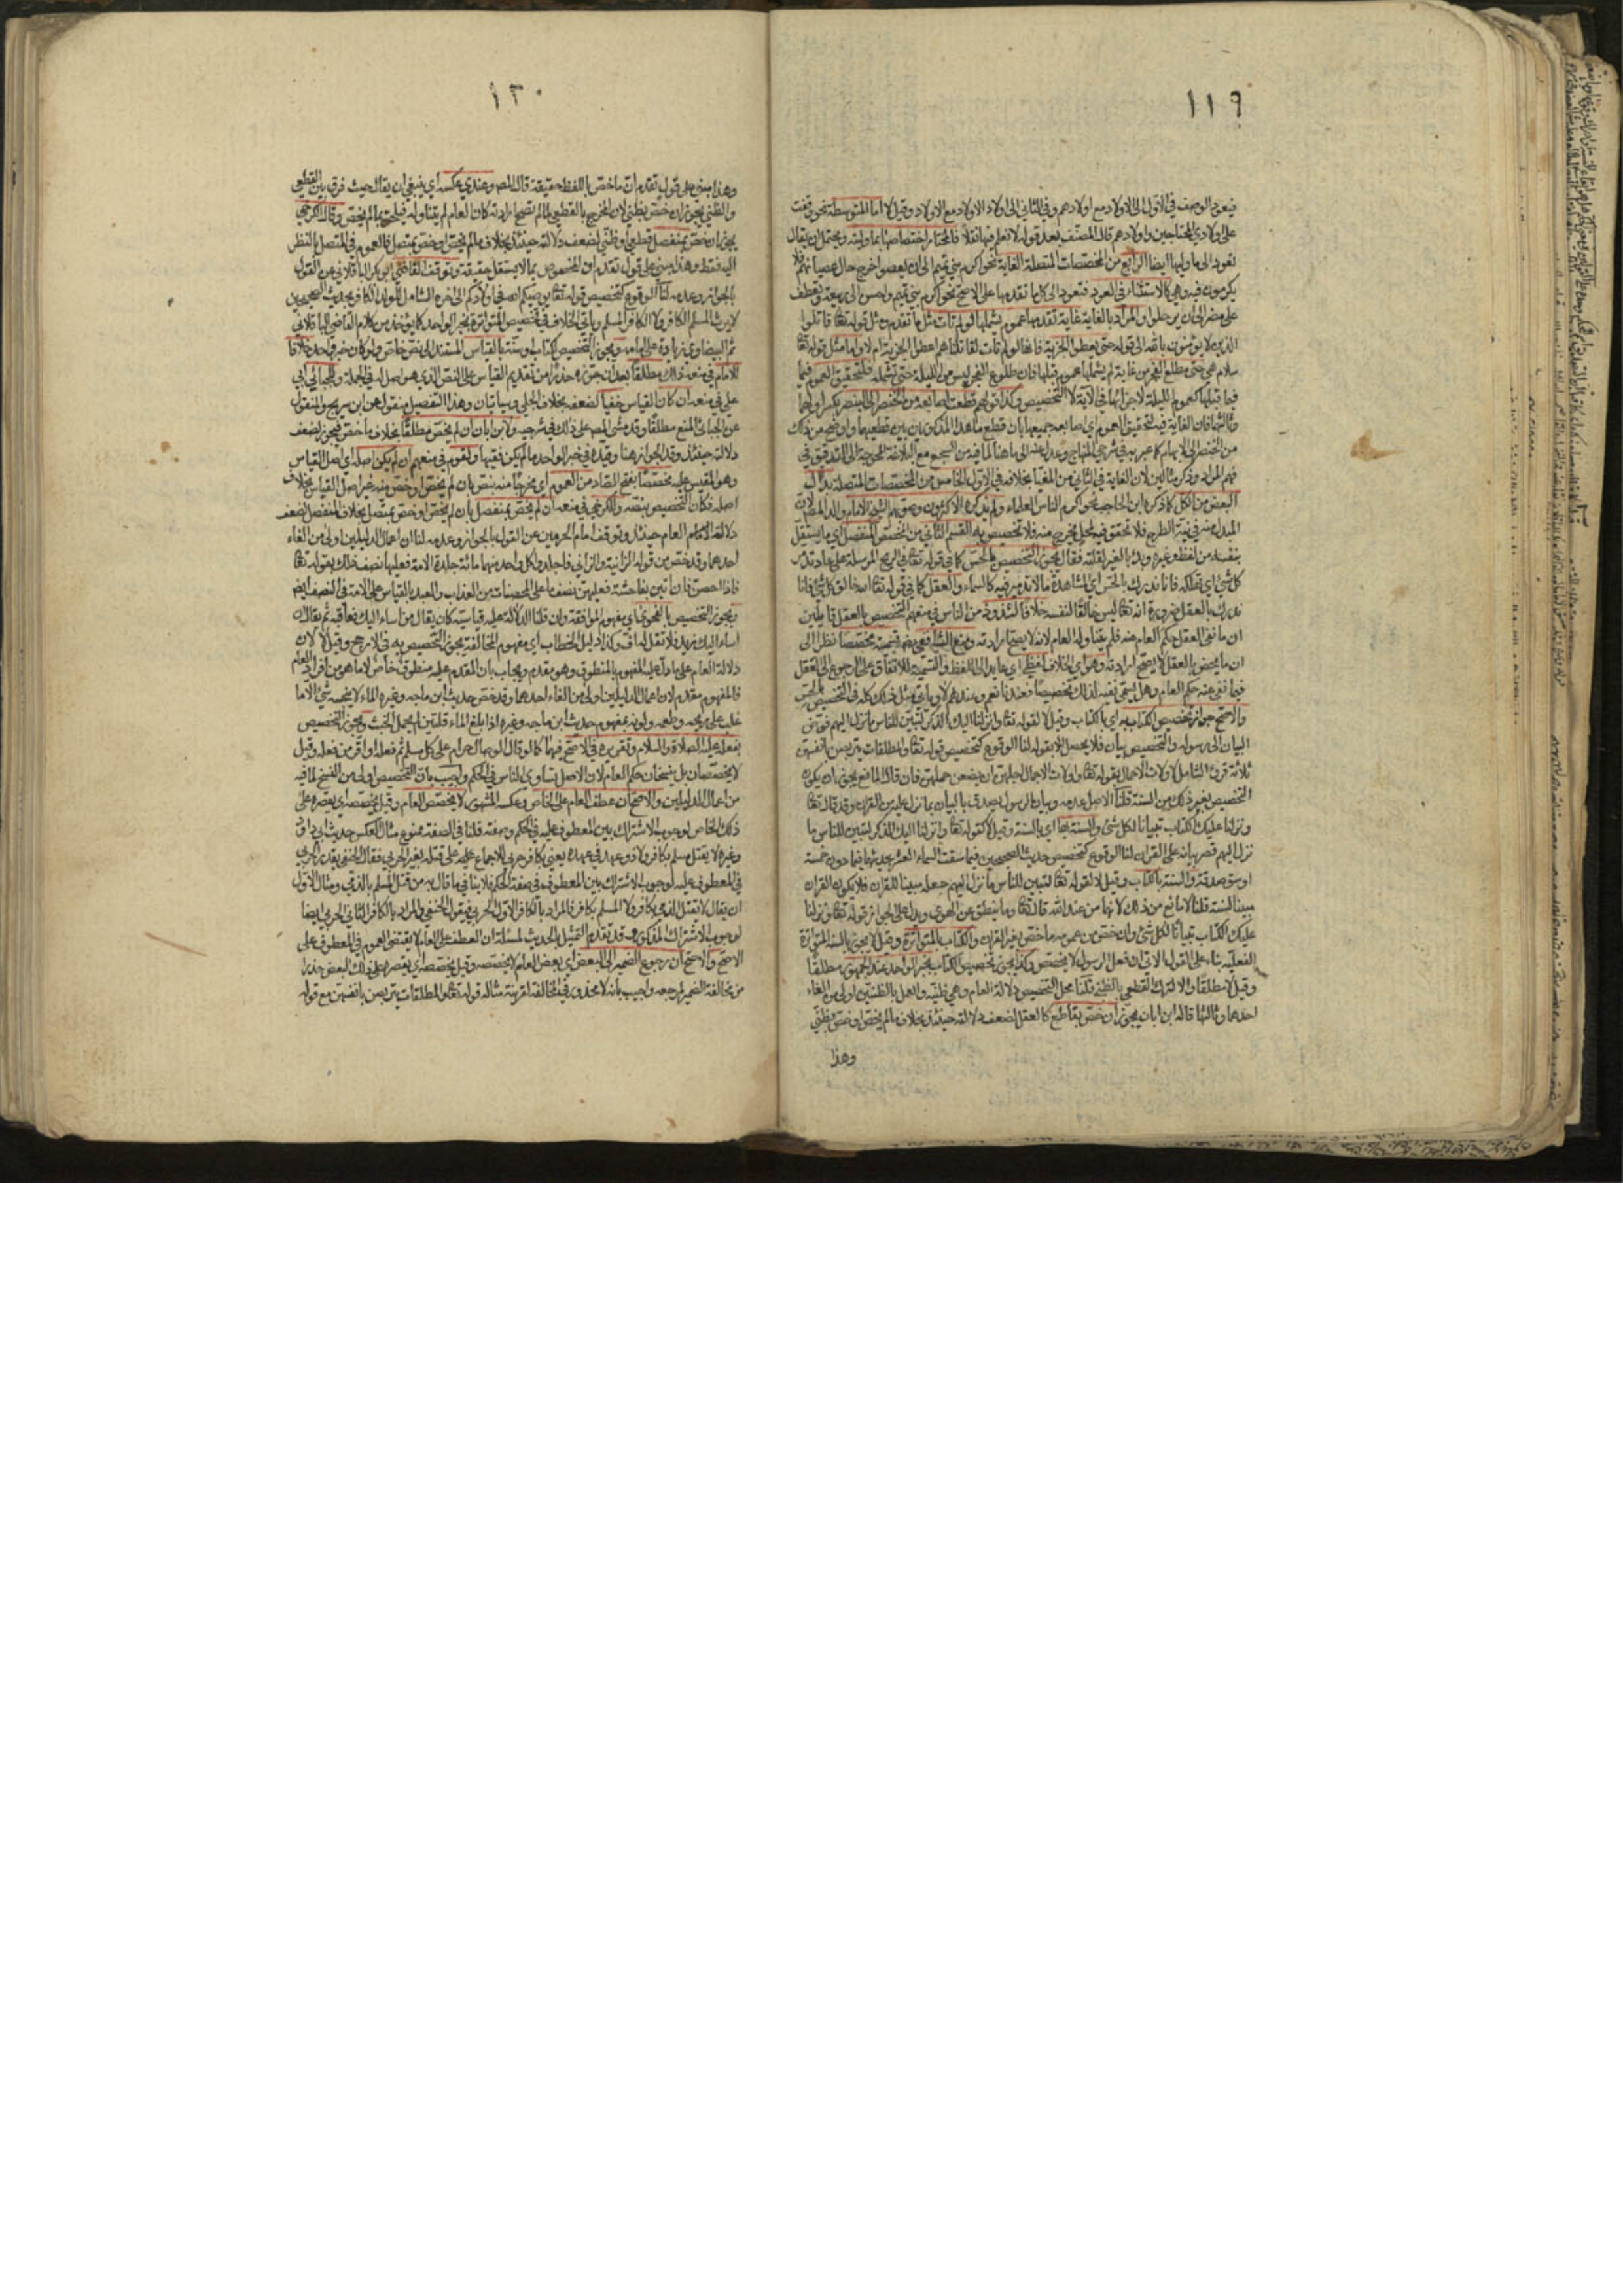 ١١٩
فيعود الوصف في الاول الى الاولاد مع اولادهم وفي الثاني الى اولاد الاولاد مع الاولاد وقيل لا اما المتوسطة نحو وقفت
على اولادي المحتاجين واولادهم قال المصنف بعد قوله لا نعلم فيها نقلا فالمختار اختصاصها بما وليته ويحتمل ان يقال
تعود الى ما وليها ايضا الرابع من المخصصات المتصلة الغاية نحو اكرم بني تميم الى ان يعصوا خرج حال عصيانهم فلا
يكرمون فيه وهي كالاستثناء في العود فتعود الى كل ما تقدمها على الاصح نحو اكرم بني تميم واحسن الى ربيعة وتعطف
على مضر الى ان يرحلوا والمراد بالغاية غاية تقدمها عموم يشملها لو لم تات مثل ما تقدم ومثل قوله تعا قاتلوا
الذين لا يؤمنون بالله الى قوله حتى يعطوا الجزية فانها لو لم تات لقاتلناهم اعطوا الجزية ام لا واما مثل قوله تعا
سلام هي حتى مطلع الفجر من غاية لم يشملها عموم قبلها فان طلوع الفجر ليس من الليلة حتى تشمله فلتحقيق العموم فيما
فيما قبلها كعموم الليلة لاجزائها في الآية لا التخصيص وكذا قولهم قطعت اصابعه من الخنصر الى البنصر بكسر اولهما
وثالثهما فان الغاية فيه لتحقيق العموم اي اصابعه جميعها بان قطع ما عدا المذكورين بين قطعيهما واوضح من ذلك
من الخنصر الى الابهام كما عبر به في شرحي المنهاج وعدل عنه الى ما هنا لما فيه من السجع مع البلاغة المحوجة الى التدقيق في
فهم المراد وذكر مثالين لان الغاية في الثاني من المغيا بخلافه في الاول الخامس من المخصصات المتصلة بدل
البعض من الكل كما ذكره ابن الحاجب نحو اكرم الناس العلماء ولم يذكره الاكثرون وصوبهم الشيخ الامام والد المصنف لان
المبدل منه في نية الطرح فلا تحقق فيه لمحل يخرج منه فلا تخصيص به القسم الثاني من المخصص المنفصل اي ما يستقل
بنفسه من لفظ وغيره وبدا بالغير لقلته فقال يجوز التخصيص بالحس كما في قوله تعا في الريح المرسلة على عاد تدمر
كل شيء اي تهلكه فانا ندرك بالحس اي المشاهدة ما لا تدمير فيه كالسماء والعقل كما في قوله تعا الله خالق كل شيء فانا
ندرك بالعقل ضرورة انه تعا ليس خالقا لنفسه خلافا لشذوذ من الناس في منعهم التخصيص بالعقل قائلين
ان ما نفى العقل حكم العام عنه فلم يتناوله العام لانه لا يصح ارادته ومنع الشافعي رضه تسميته تخصيصا نظرا الى
ان ما يخص بالعقل لا يصح ارادته وهو اي الخلاف لفظي اي عائد الى اللفظ والتسمية للاتفاق على الرجوع الى العقل
فيما نفى عنه حكم العام وهل يسمى نفيه لذلك تخصيصا فعندنا نعم وعندهم لا وياتي مثل ذلك كله في التخصيص بالحس
والاصح جواز تخصيص الكتاب به اي بالكتاب وقيل لا لقوله تعا وانزلنا اليك الذكر لتبين للناس ما نزل اليهم فوض
البيان الى رسوله والتخصيص بيان فلا يحصل الا بقوله لنا الوقوع كتخصيص قوله تعا والمطلقات يتربصن بانفسهن
ثلاثة قروء الشامل لاولات الاحمال بقوله تعا واولات الاحمال اجلهن ان يضعن حملهن فان قال المانع يجوز ان يكون
التخصيص بغير ذلك من السنة قلنا الاصل عدمه وبيان الرسول يصدق بالبيان بما نزل عليه من القران وقد قال تعا
ونزلنا عليك الكتاب تبيانا لكل شئ والسنة بها اي بالسنة وقيل لا كقوله تعا وانزلنا اليك الذكر لتبين للناس ما
نزل اليهم قصر بيانه على القران لنا الوقوع كتخصيص حديث الصحيحين فيما سقت السماء العشر بحديثهما ليس فيما دون خمسة
اوسق صدقة والسنة بالكتاب وقيل لا لقوله تعا لتبين للناس ما نزل اليهم جعله مبينا للقران فلا يكون القران
مبينا للسنة قلنا لا مانع من ذلك لانهما من عند الله قال تعا وما ينطق عن الهوى ويدل على الجواز قوله تعا ونزلنا
عليك الكتاب تبيانا لكل شئ وان خص من عمومه ما خص بغير القران والكتاب بالمتواترة وقيل لا يجوز بالسنة المتواترة
الفعلية بناء على القول الاتي ان فعل الرسول لا يخصص وكذا يجوز تخصيص الكتاب بخبر الواحد عند الجمهور مطلقا
وقيل لا مطلقا والا لترك القطعي بالظني قلنا محل التخصيص دلالة العام وهي ظنية والعمل بالظنيين اولى من الغاء
احدهما وثالثها قاله ابن ابان يجوز ان خص بقاطع كالعقل لضعف دلالته حينئذ بخلاف ما لم يخص او خص بظني
وهذا
١٢٠
وهذا مبني على قول تقدم ان ما خص باللفظ حقيقة قال المص وعندي عكسه اي ينبغي ان يقال حيث فرق بين القطعي
والظني يجوز ان خص بظني لان المخرج بالقطعي لما لم تصح ارادته كان العام لم يتناوله فيلحق بما لم يخص وقال الكرخي
يجوز ان خص بمنفصل قطعي او ظني لضعف دلالته حينئذ بخلاف ما لم يخص او خص بمتصل فالعموم في المتصل بالنظر
اليه فقط وهذا مبني على قول تقدم ان المخصوص بما لا يستقل حقيقة وتوقف القاضي ابو بكر الباقلاني عن القول
بالجواز وعدمه لنا الوقوع كتخصيص قوله تعا يوصيكم الله في اولادكم الى اخره الشامل للولد الكافر بحديث الصحيحين
لا يرث المسلم الكافر ولا الكافر المسلم وياتي الخلاف في تخصيص المتواترة بخبر الواحد كما يؤخذ من كلام القاضي الباقلاني
ثم البيضاوي زيادة على امامه ويجوز التخصيص لكتاب او سنة بالقياس المستند الى نص خاص ولو كان خبر واحد خلافا
للامام في منعه ذلك مطلقا بعد ان جوزه حذرا من تقديم القياس على النص الذي هو اصل له في الجملة وللجبائي ابي
علي في منعه ان كان القياس خفيا لضعفه بخلاف الجلي وسياتيان وهذا التفصيل منقول عن ابن سريج والمنقول
عن الجبائي المنع مطلقا وقد مشى المص على ذلك في شرحيه ولابن ابان ان لم يخص مطلقا بخلاف ما خص فيجوز لضعف
دلالته حينئذ وقد الجواز هنا وقيده في خبر الواحد ما لم يكن فيهما ولقوم في منعهم ان لم يكن اصله اي اصل القياس
وهو المقيس عليه مخصصا بفتح الصاد من العموم اي مخرجا منه بنص بان لم يخص او خص منه غير اصل القياس بخلاف
اصله فكان التخصيص بنصه وللكرخي في منعه ان لم يخص بمنفصل بان لم يخص او خص بمتصل بخلاف المنفصل لضعف
دلالة العام حينئذ وتوقف امام الحرمين عن القول بالجواز وعدمه لنا ان اعمال الدليلين اولى من الغاء
احدهما وقد خص من قوله الزانية والزاني فاجلدوا كل واحد منهما مائة جلدة الامة فعليها نصف ذلك بقوله تعا
فاذا احصن فان اتين بفاحشة فعليهن نصف ما على المحصنات من العذاب والعبد بالقياس على الامة في النصف ايض
ويجوز التخصيص بالفحوى اي مفهوم الموافقة وان قلنا الدلالة عليه قياسية كان يقال من اساء اليك فعاقبه ثم يقال ان
اساء اليك زيد فلا تقل له اف وكذا دليل الخطاب اي مفهوم المخالفة يجوز التخصيص به في الارجح وقيل لا لان
دلالة العام على ما دل عليه المفهوم بالمنطوق وهو مقدم ويجاب بان المقدم عليه منطوق خاص لا ما هو من افراد العام
فالمفهوم مقدم لان اعمال الدليلين اولى من الغاء احدهما وقد خص حديث ابن ماجه وغيره الماء لا ينجسه شئ الا ما
غلب على ريحه وطعمه ولونه بمفهوم حديث ابن ماجه وغيره اذا بلغ الماء قلتين لم يحمل الخبث ويجوز التخصيص
بفعله عليه الصلاة والسلام وتقريره في الاصح فيهما كما لو قال الوصال حرام على كل مسلم ثم فعله او اقر من فعله وقيل
لا يخصصان بل ينسخان حكم العام لان الاصل تساوي الناس في الحكم واجيب بان التخصيص اولى من النسخ لما فيه
من اعمال الدليلين والاصح ان عطف العام على الخاص وعكسه المشهور لا يخصص العام وقيل يخصصه اي يقصره على
ذلك الخاص لوجوب الاشتراك بين المعطوف عليه في الحكم وصفته قلنا في الصفة ممنوع مثال العكس حديث ابي داود
وغيره لا يقتل مسلم بكافر ولا ذو عهد في عهده يعني بكافر حربي للاجماع عليه على قتله بغير الحربي فقال الحنفي يقدر الحربي
في المعطوف عليه لوجوب الاشتراك بين المعطوف في صفة الحكم فلا ينافي ما قال به من قتل المسلم بالذمي ومثال الاول
ان يقال لا يقتل الذمي بكافر ولا المسلم بكافر فالمراد بالكافر الاول الحربي فيقول الحنفي والمراد بالكافر الثاني الحربي ايضا
لوجوب الاشتراك المذكور وقد تقدم التمثيل بالحديث لمسئلة ان العطف على العام لا يقتضي العموم في المعطوف على
الاصح والاصح ان رجوع الضمير الى البعض اي بعض العام لا يخصصه وقيل يخصصه اي يقصره على ذلك البعض حذرا
من مخالفة الضمير لمرجعه واجيب بانه لا محذور في المخالفة لقرينة مثاله قوله تعا والمطلقات يتربصن بانفسهن مع قوله